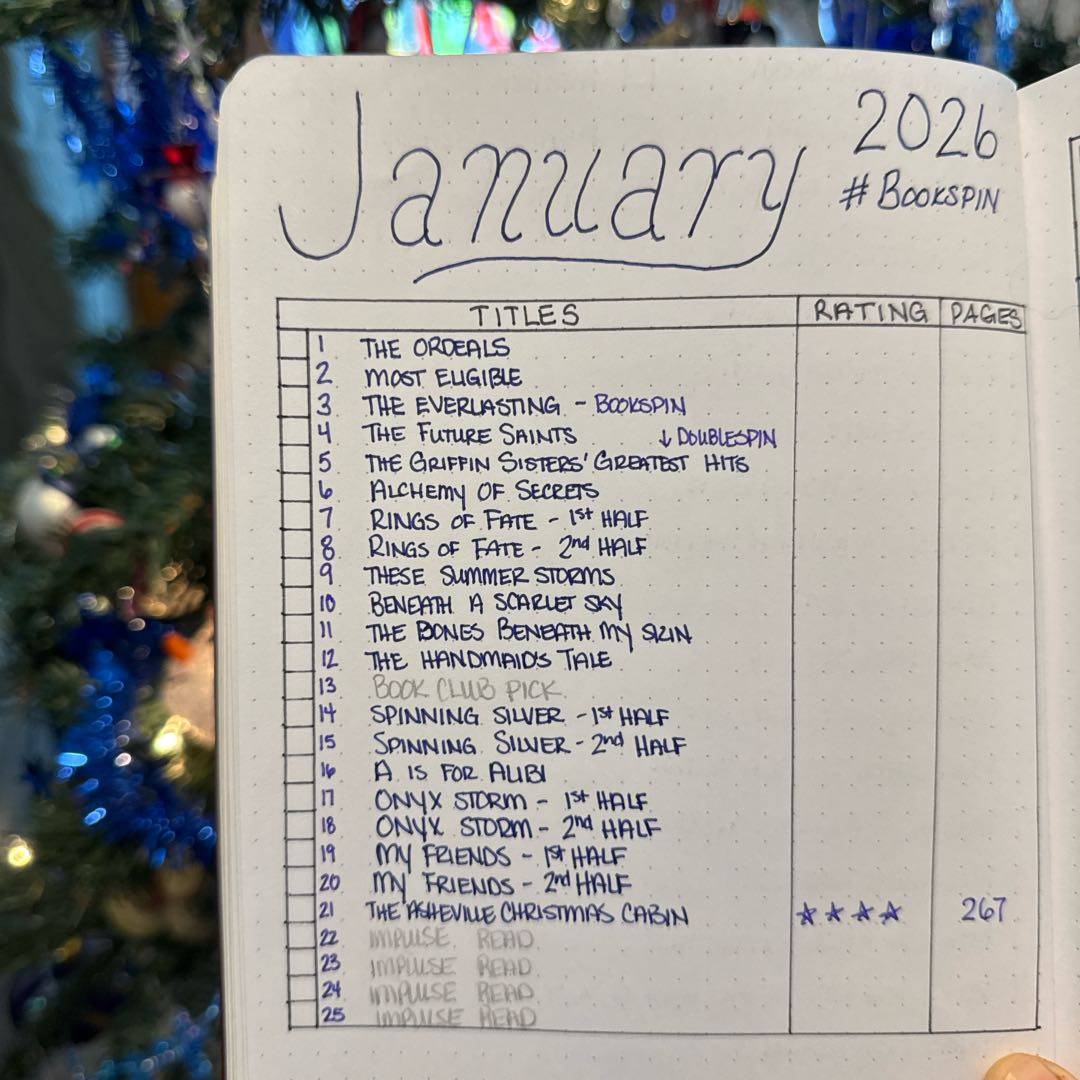 January
2026
# BOOKSPIN
TITLES RATING PAGES
1 THE ORDEALS
2 MOST ELIGIBLE
3 THE EVERLASTING - BOOKSPIN
4 THE FUTURE SAINTS ↓ DOUBLESPIN
5 THE GRIFFIN SISTERS' GREATEST HITS
6 ALCHEMY OF SECRETS
7 RINGS OF FATE - 1st HALF
8 RINGS OF FATE - 2nd HALF
9 THESE SUMMER STORMS
10 BENEATH A SCARLET SKY
11 THE BONES BENEATH MY SKIN
12 THE HANDMAID'S TALE
13 BOOK CLUB PICK
14 SPINNING SILVER - 1st HALF
15 SPINNING SILVER - 2nd HALF
16 A IS FOR ALIBI
17 ONYX STORM - 1st HALF
18 ONYX STORM - 2nd HALF
19 MY FRIENDS - 1st HALF
20 MY FRIENDS - 2nd HALF
21 THE ASHEVILLE CHRISTMAS CABIN ★ ★ ★ ★ 267
22 IMPULSE READ
23 IMPULSE READ
24 IMPULSE READ
25 IMPULSE READ